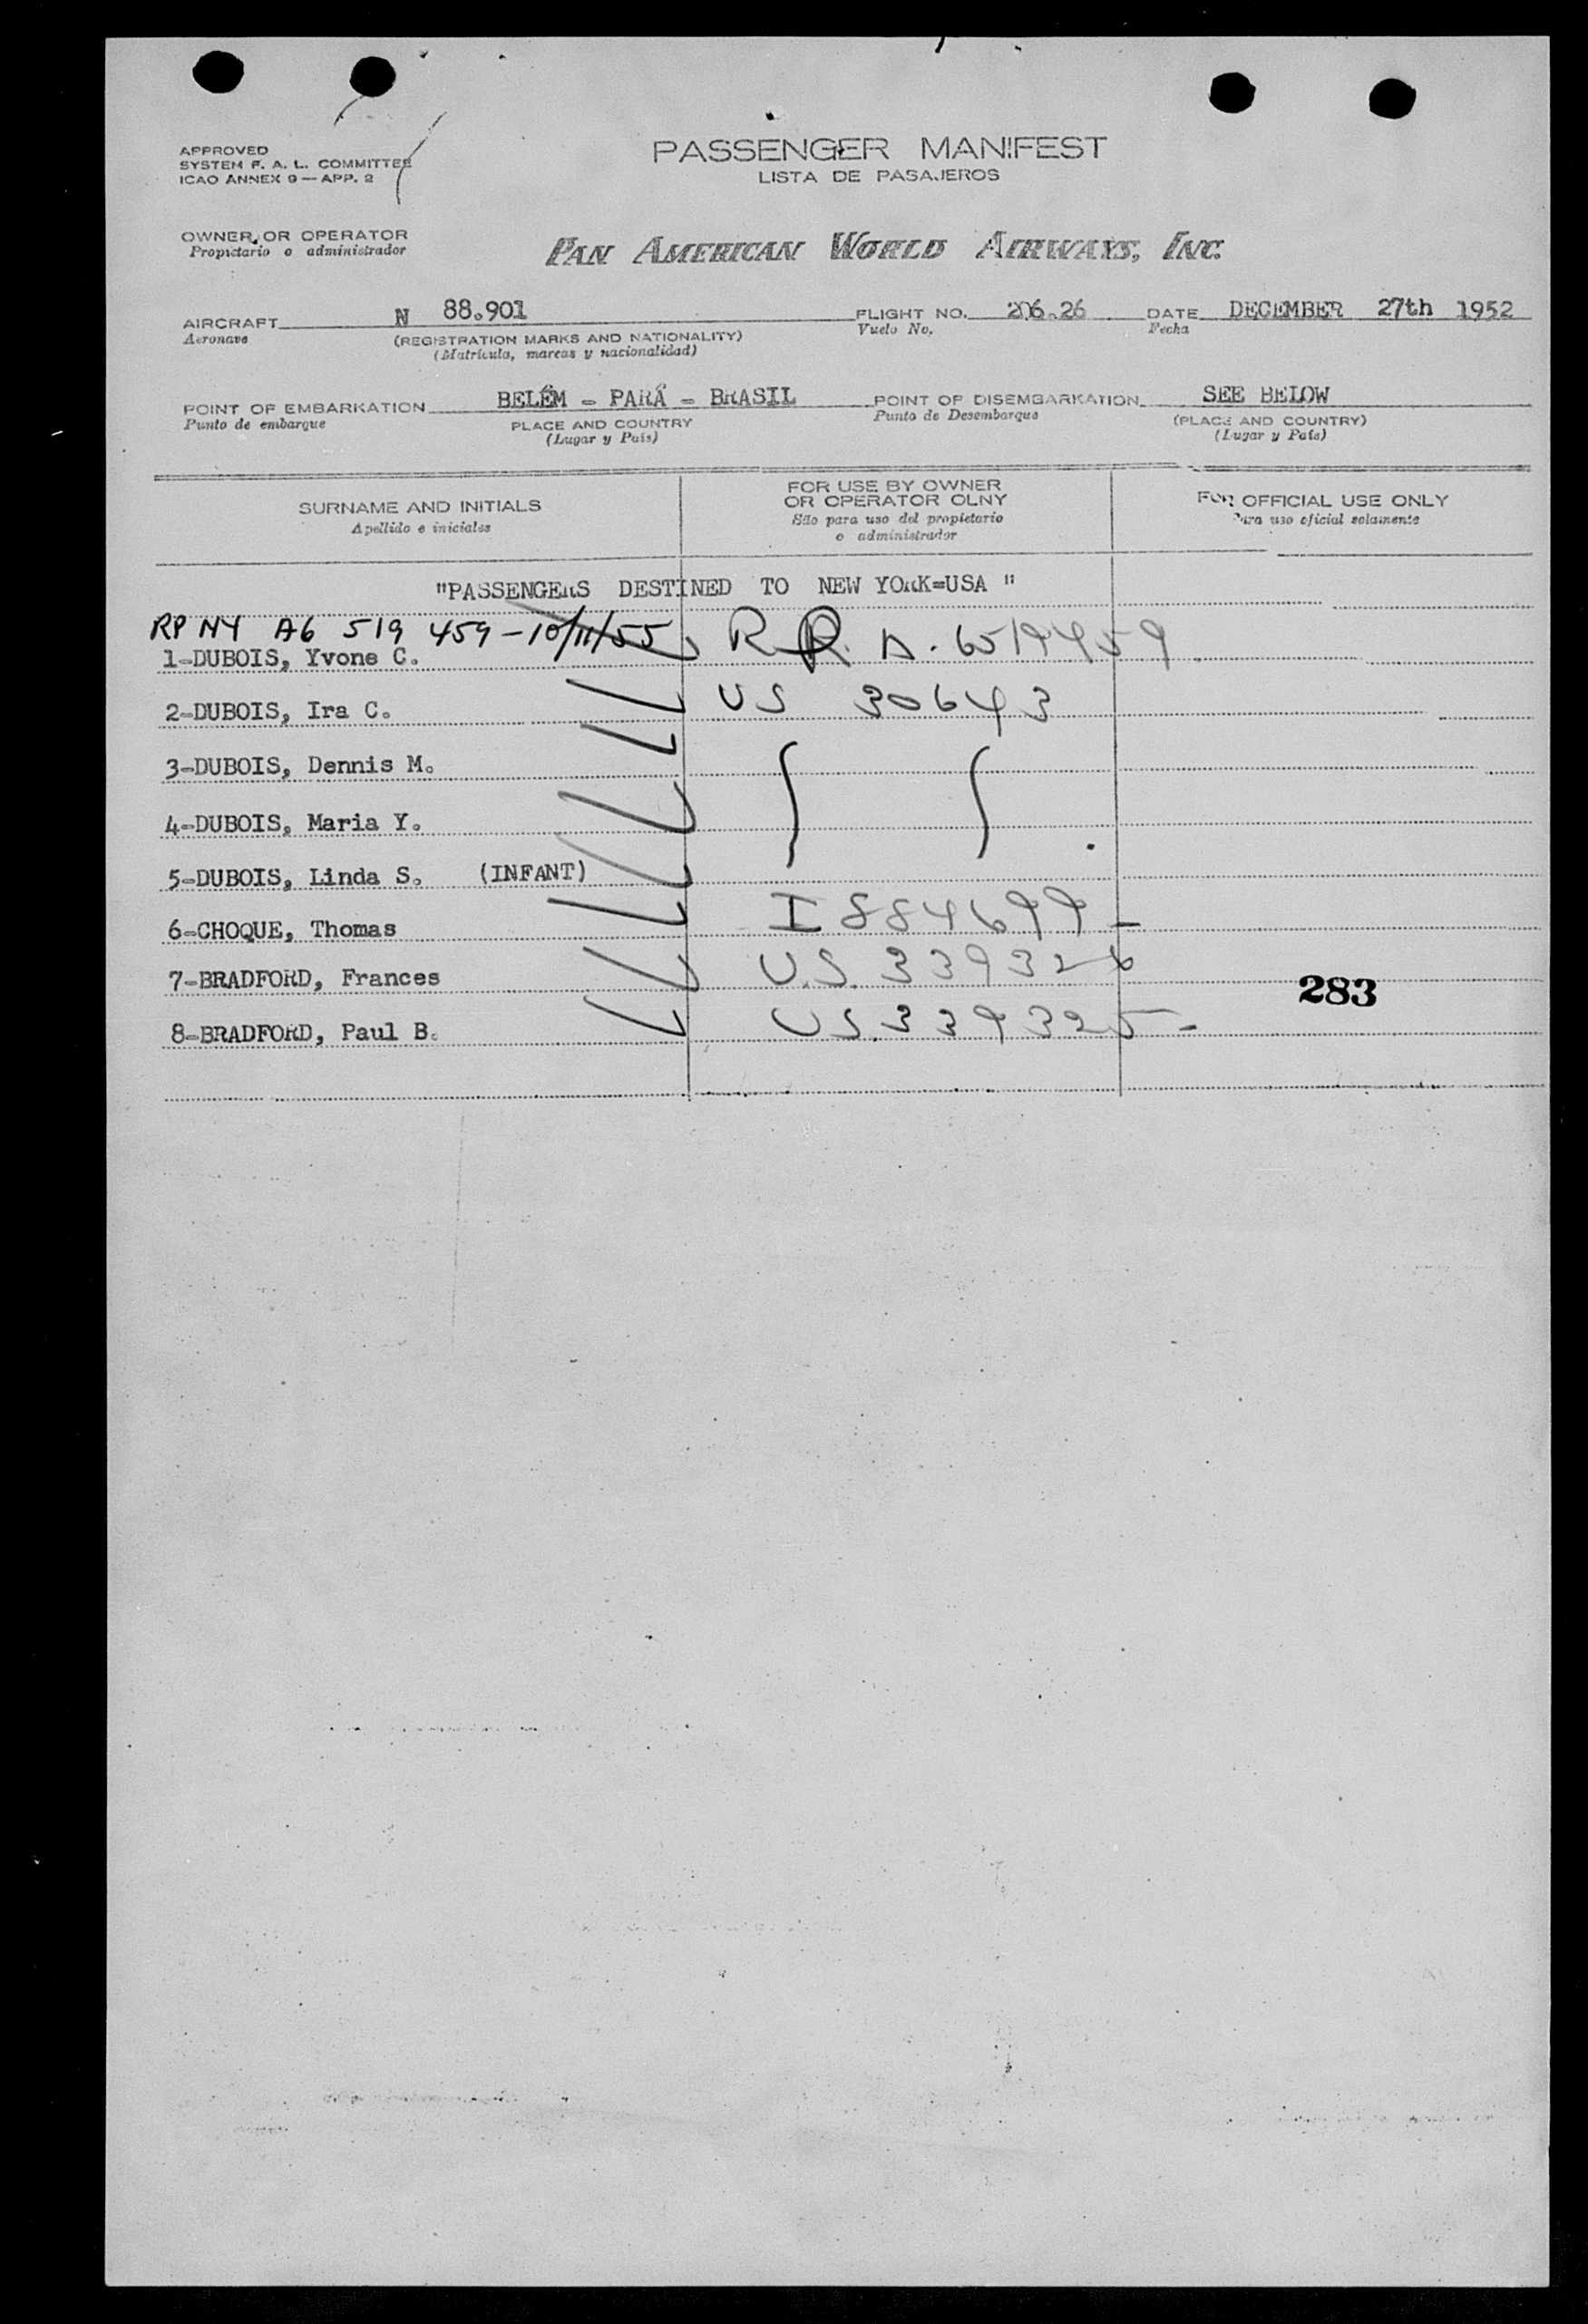 APPROVED
SYSTEM F. A. L. COMMITTEE
ICAO ANNEX 9 — APP. 2
PASSENGER MANIFEST
LISTA DE PASAJEROS
OWNER OR OPERATOR
Propietario o administrador
PAN AMERICAN WORLD AIRWAYS, INC.
AIRCRAFT N 88.901 FLIGHT NO. 206.26 DATE DECEMBER 27th 1952
Aeronave (REGISTRATION MARKS AND NATIONALITY) Vuelo No. Fecha
(Matrícula, marcas y nacionalidad)
POINT OF EMBARKATION BELÉM - PARÁ - BRASIL POINT OF DISEMBARKATION SEE BELOW
Punto de embarque PLACE AND COUNTRY Punto de Desembarque (PLACE AND COUNTRY)
(Lugar y País) (Lugar y País)
SURNAME AND INITIALS
Apellido e iniciales
FOR USE BY OWNER
OR OPERATOR OLNY
Sáo para uso del propietario
o administrador
FOR OFFICIAL USE ONLY
Para uso oficial solamente
"PASSENGERS DESTINED TO NEW YORK=USA "
RP NY A6 519 459 - 10/11/55 R R. A. 6519459
1-DUBOIS, Yvone C.
2-DUBOIS, Ira C. US 30643
3-DUBOIS, Dennis M.
4-DUBOIS, Maria Y.
5-DUBOIS, Linda S. (INFANT)
6-CHOQUE, Thomas I 884699 -
7-BRADFORD, Frances U.S. 339326
283
8-BRADFORD, Paul B. US. 339325 -